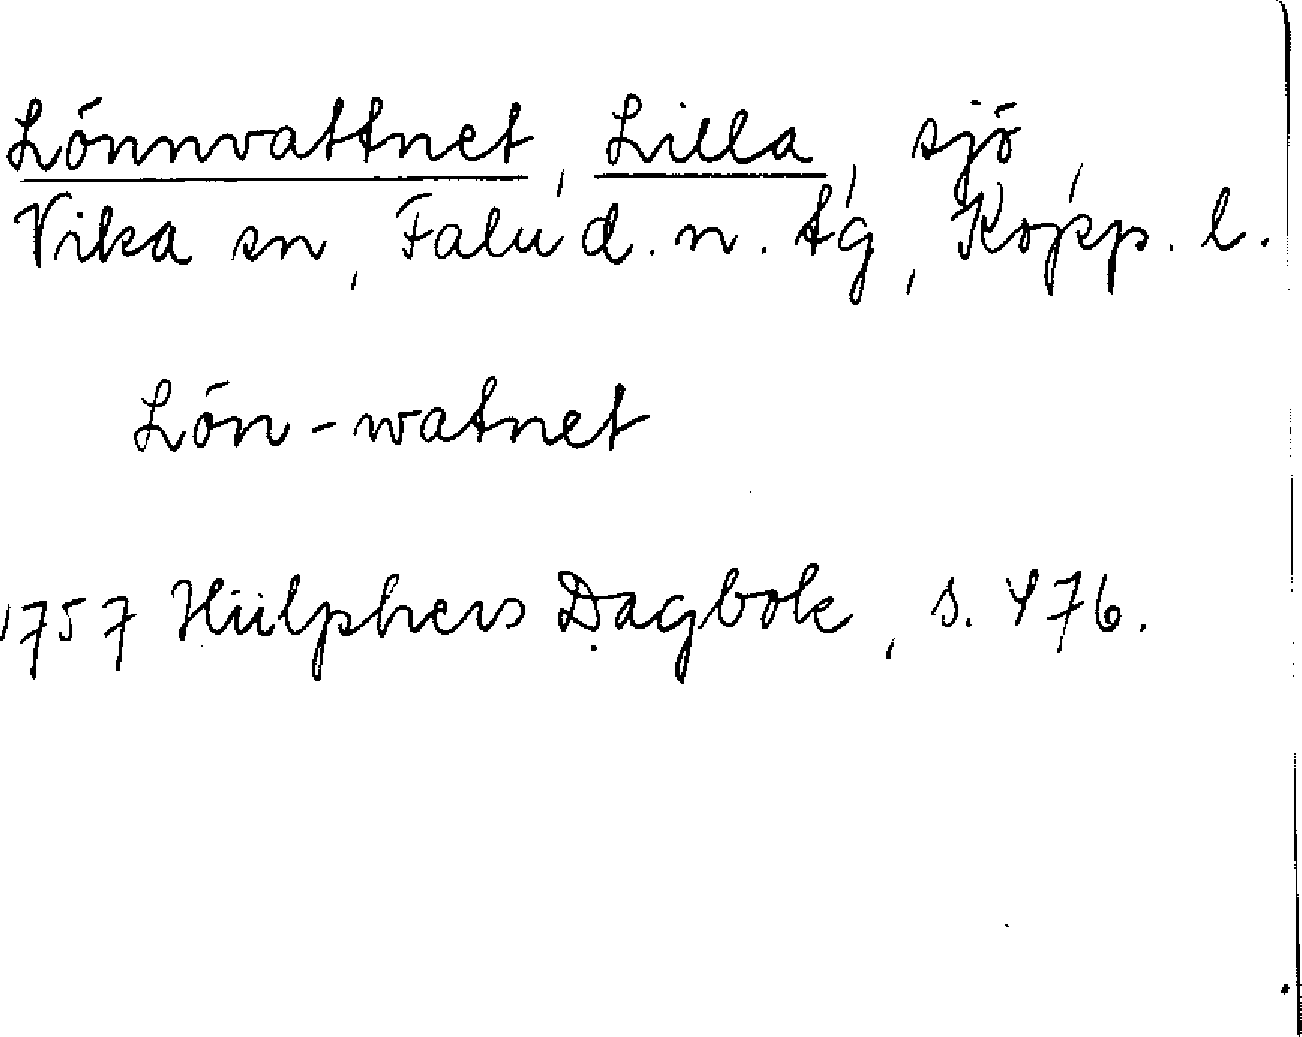 Lönnvattnet, Lilla, sjö,
Vika sn, Falu d. n. tg, Kopp. l.
Lön-watnet
1757 Hülphers Dagbok, s. 476.